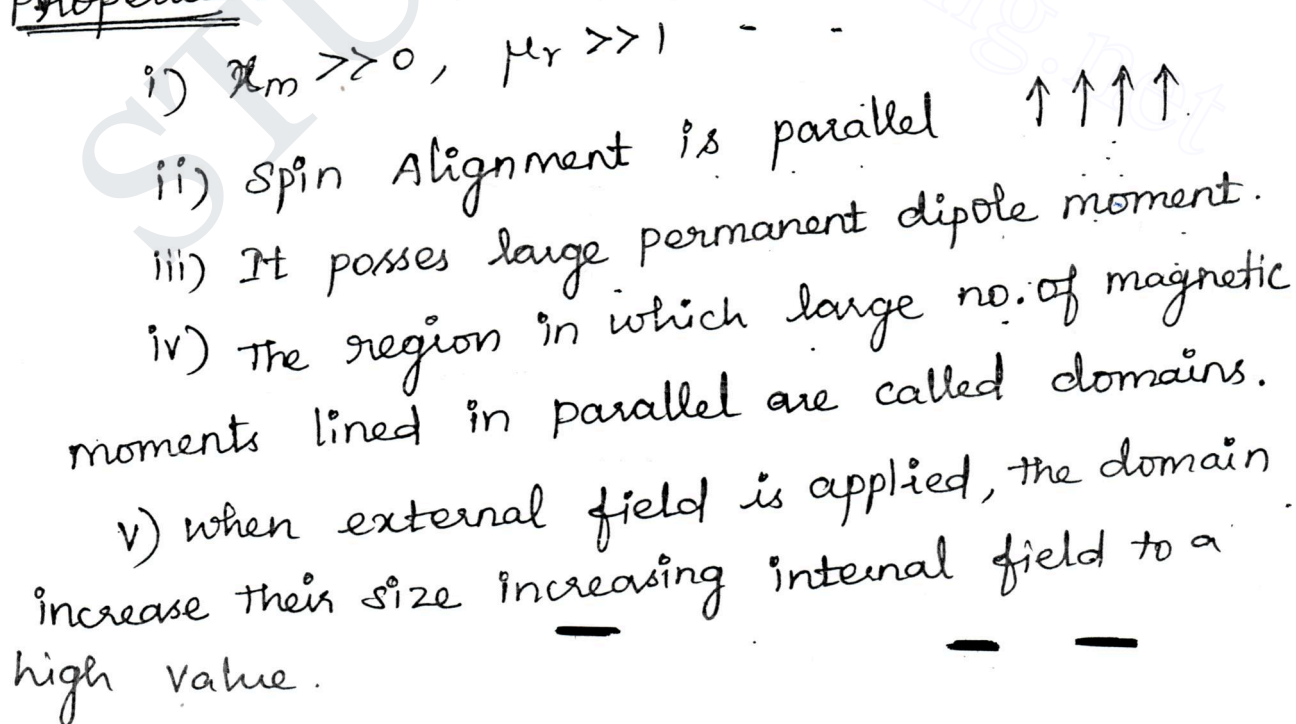 i) χm >>0, μr >>1 - -
ii) Spin Alignment is parallel ↑↑↑↑.
iii) It posses large permanent dipole moment.
iv) The region in which large no. of magnetic
moments lined in parallel are called domains.
v) when external field is applied, the domain
increase their size increasing internal field to a
high value.